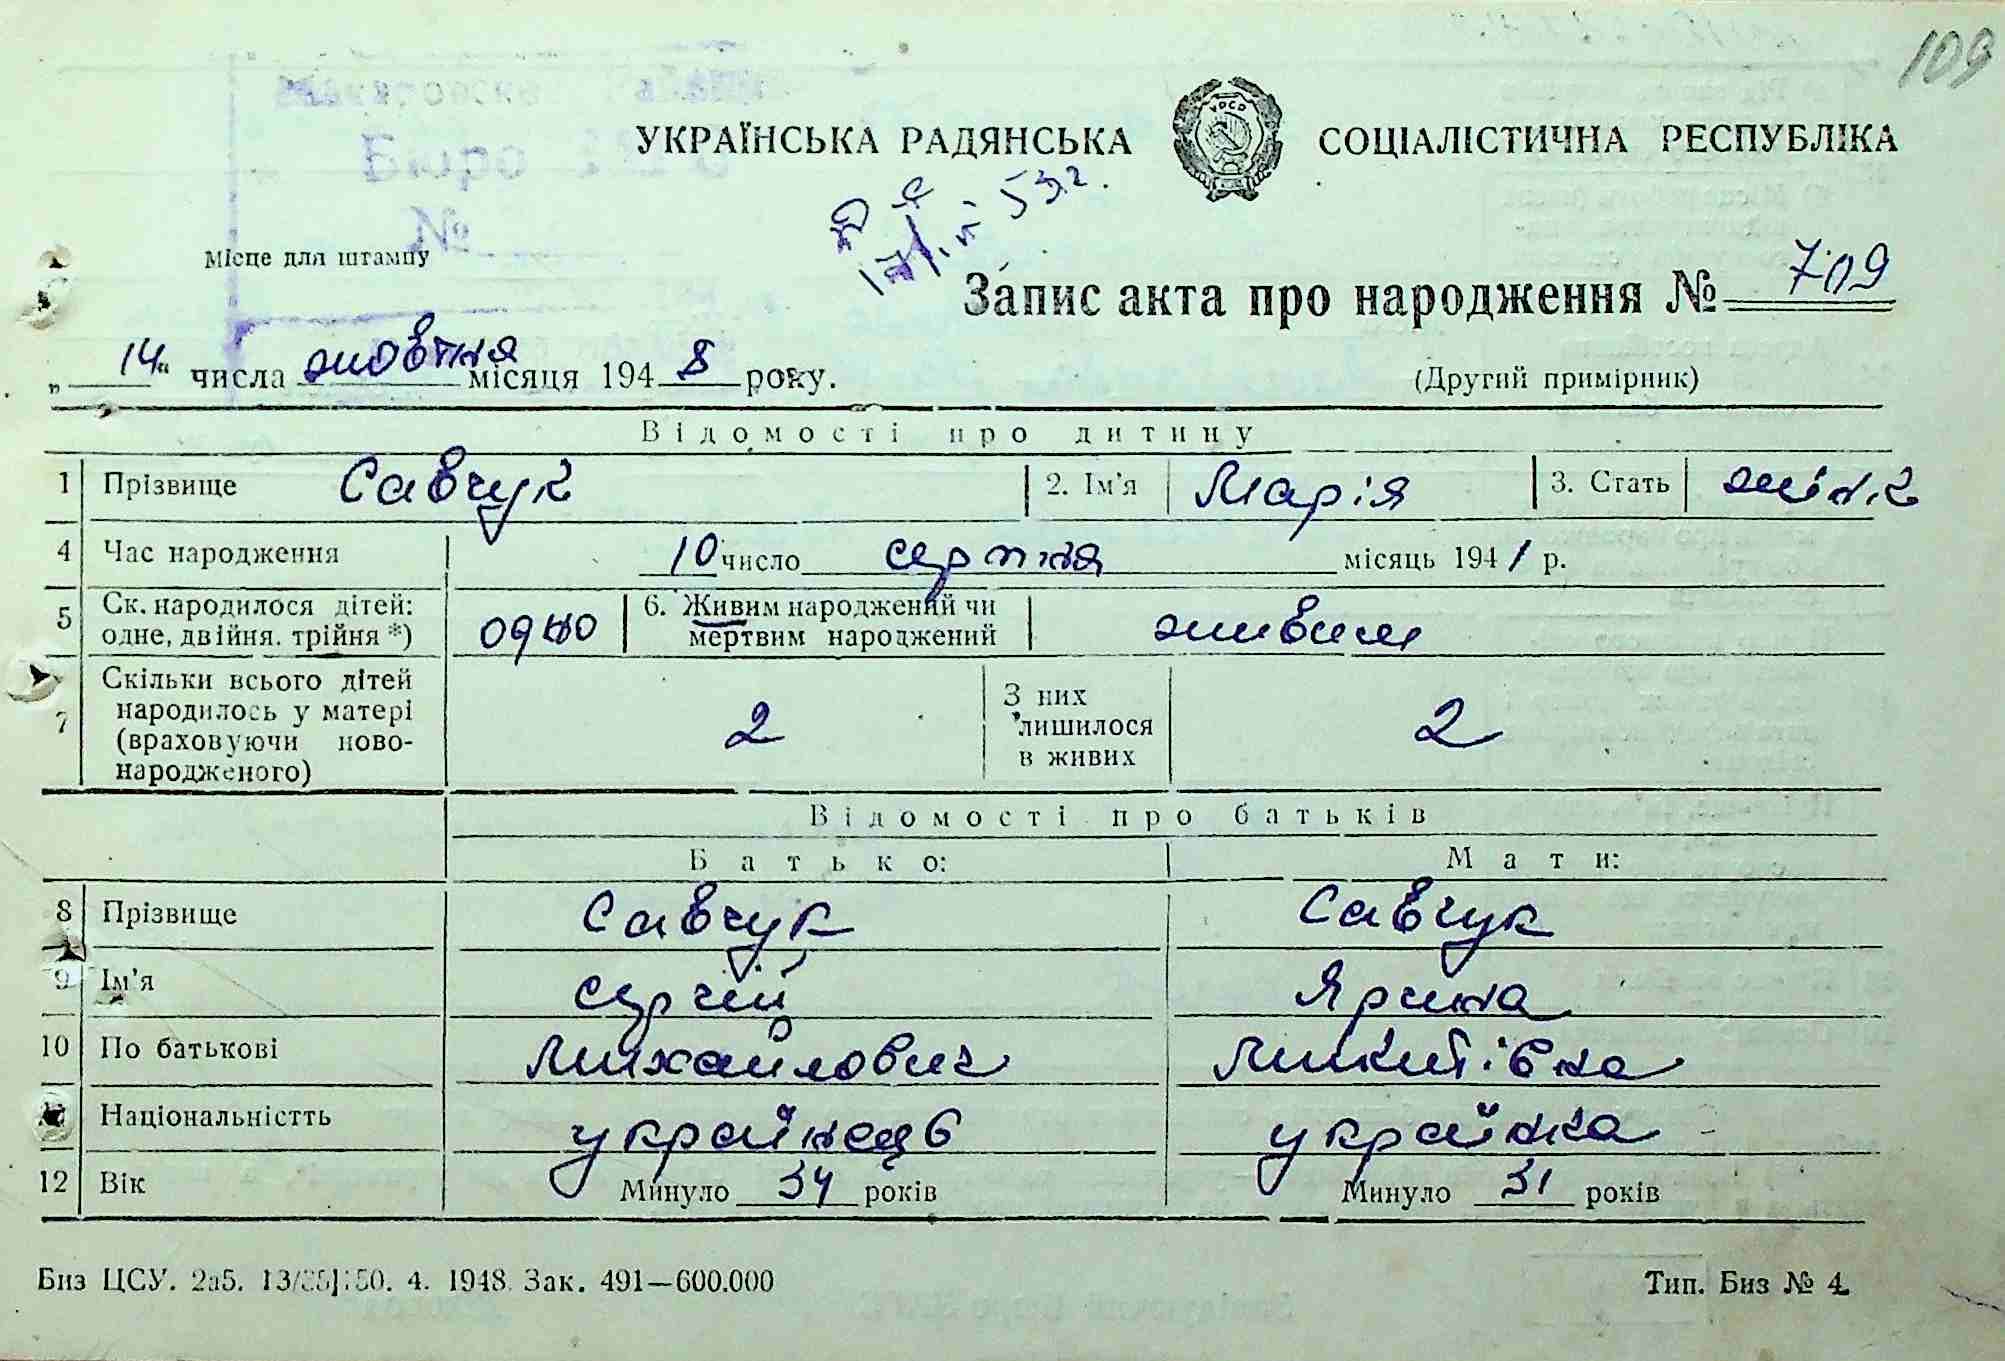 109
Бюро
№
УКРАЇНСЬКА РАДЯНСЬКА СОЦІАЛІСТИЧНА РЕСПУБЛІКА
УРСР
Місце для штампу
Запис акта про народження № 709
„ 14 “ числа жовтня місяця 194 8 року.
(Другий примірник)
Відомості про дитину
1 Прізвище Савчук 2. Ім'я Марія 3. Стать жіноч
4 Час народження 10 число серпня місяць 194 1 р.
5 Ск. народилося дітей: одне, двійня. трійня *) одно 6. Живим народжений чи мертвим народжений живим
7 Скільки всього дітей народилось у матері (враховуючи новонародженого) 2 З них лишилося в живих 2
Відомості про батьків
Батько: Мати:
8 Прізвище Савчук Савчук
9 Ім'я Сергій Ярина
10 По батькові Михайлович Микитівна
Національністть українець українка
12 Вік Минуло 34 років Минуло 31 років
Биз ЦСУ. 2а5. 4. 1948. Зак. 491—600.000
Тип. Биз № 4.